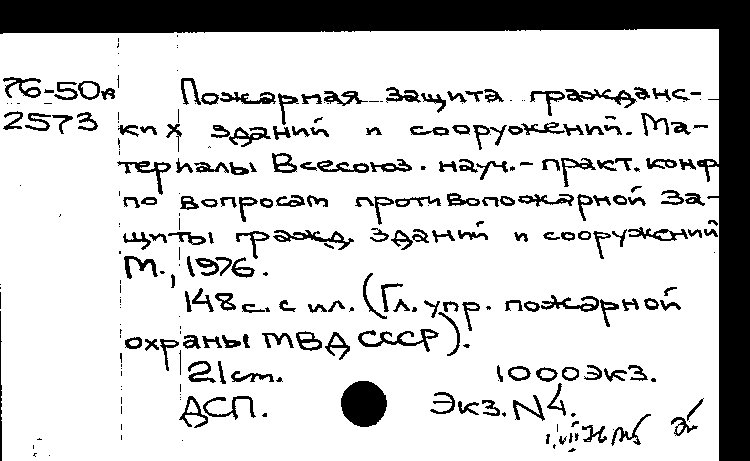 76-50в
2573
Пожарная защита гражданс-
ких зданий и сооружений. Ма-
териалы Всесоюз. науч.-практ. конф
по вопросам противопожарной за-
щиты гражд. зданий и сооружений
М., 1976.
148с. с ил. (Гл. упр. пожарной
охраны МВД СССР).
21см. 1000экз.
ДСП. Экз. N4.